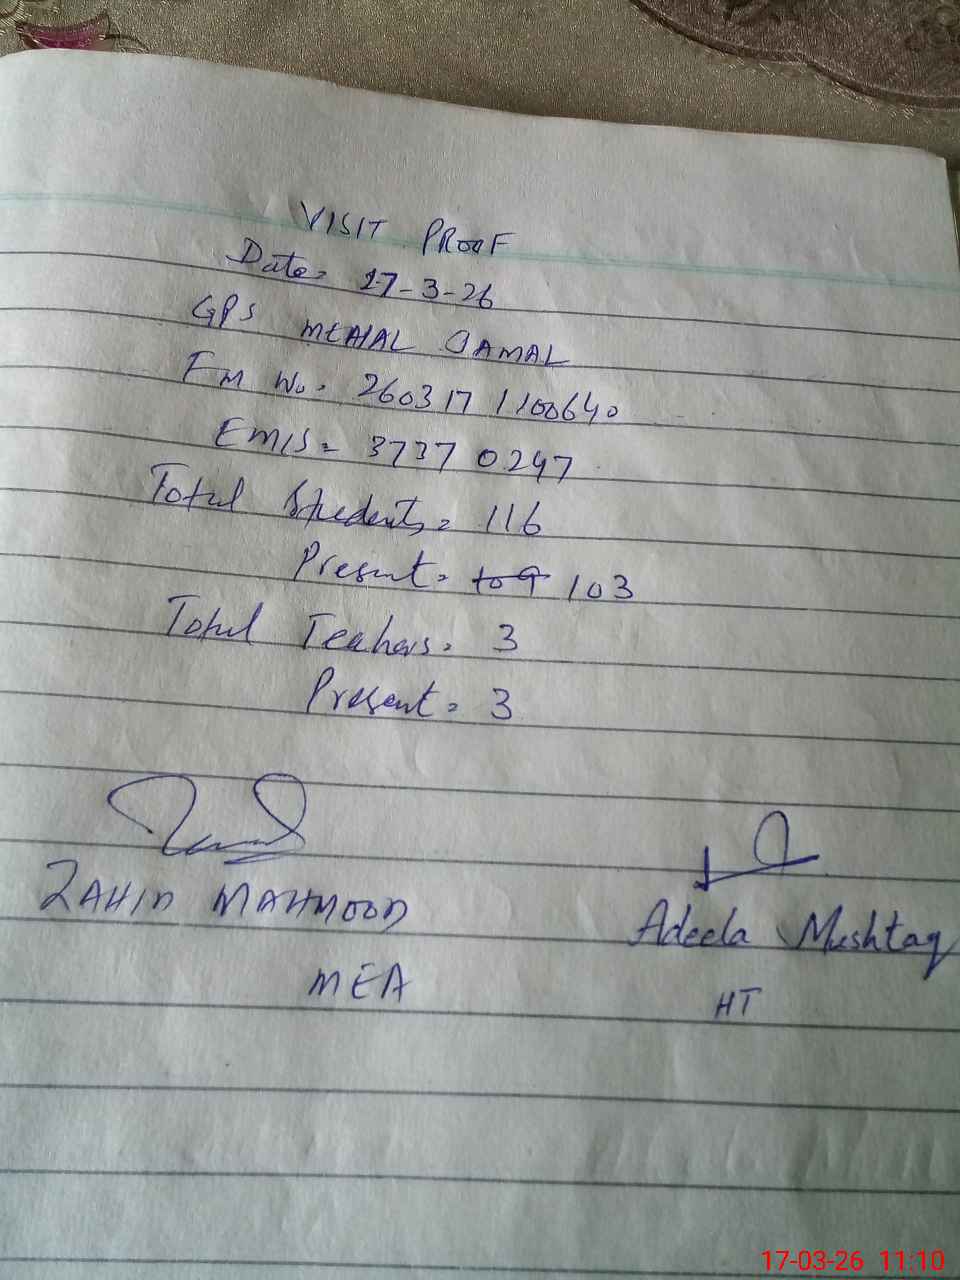 VISIT PROOF
Date= 17-3-26
GPS MEHAL JAMAL
FM No= 260317 1100640
EMIS= 37370247
Total Students= 116
Present= 109 103
Total Teahers= 3
Present= 3
ZAHID MAHMOOD
Adeela Mushtaq
MEA
HT
17-03-26 11:10